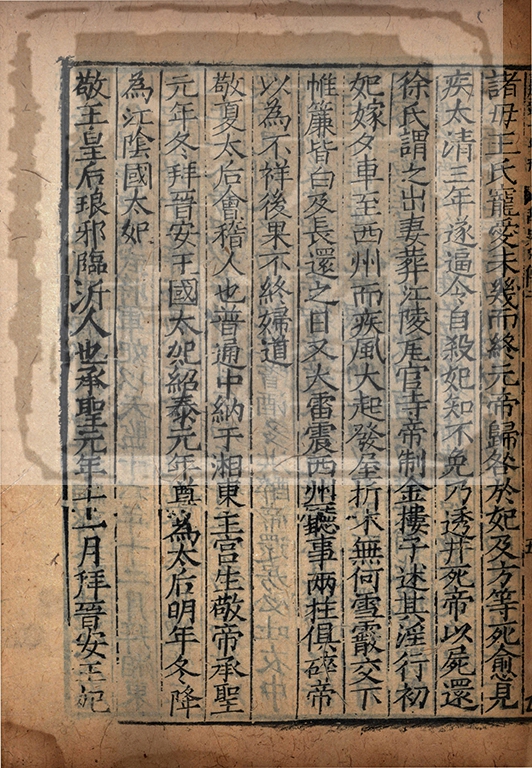 諸母王氏寵愛未幾而終元帝歸咎於妃及方等死愈見
疾太清三年遂逼令自殺妃知不免乃透井死帝以屍還
徐氏謂之出妻葬江陵瓦官寺帝制金樓子述其淫行初
妃嫁夕車至西州而疾風大起發屋折木無何雪霰交下
帷簾皆白及長還之日又大雷震西州聽事兩柱俱碎帝
以為不祥後果不終婦道
敬夏太后會稽人也普通中納于湘東王宮生敬帝承聖
元年冬拜晉安王國太妃紹泰元年尊為太后明年冬降
為江陰國太妃
敬王皇后琅邪臨沂人也承聖元年十一月拜晉安王妃